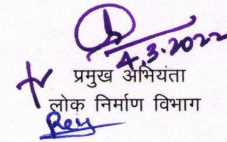 4.3.2022
प्रमुख अभियंता
लोक निर्माण विभाग